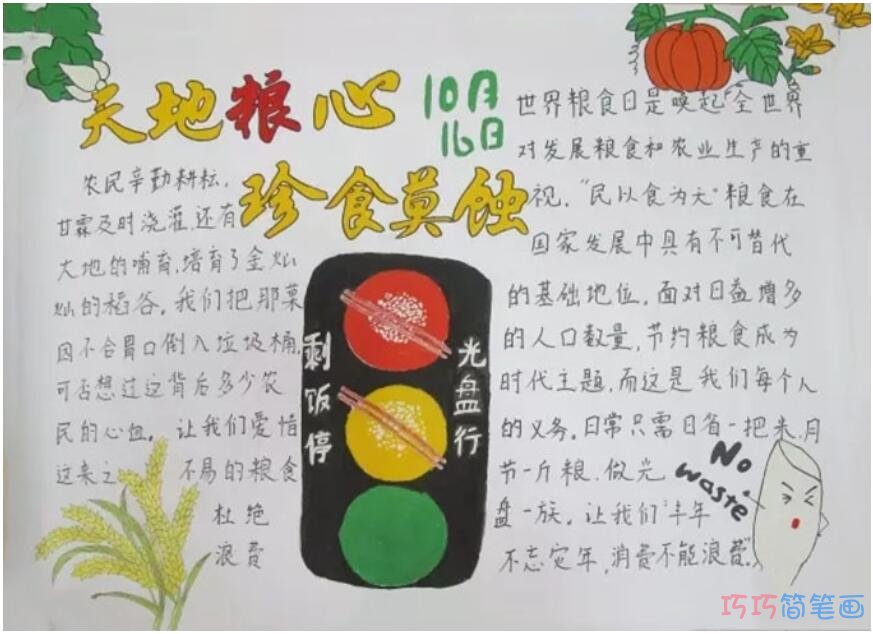 天地粮心
10月
16日
珍食莫蚀
农民辛勤耕耘，
甘霖及时浇灌，还有
大地的哺育，培育了金灿
灿的稻谷。我们把那菜
因不合胃口倒入垃圾桶，
可否想过这背后多少农
民的心血。让我们爱惜
这来之 不易的粮食
杜绝
浪费
剩饭停
光盘行
世界粮食日是唤起“全世界
对发展粮食和农业生产的重
视，“民以食为天”粮食在
国家发展中具有不可替代
的基础地位，面对日益增多
的人口数量，节约粮食成为
时代主题，而这是我们每个人
的义务。日常只需日省一把米，月
节一斤粮，做光
盘一族。让我们“丰年
不忘灾年，消费不能浪费”。
No
waste
巧巧简笔画